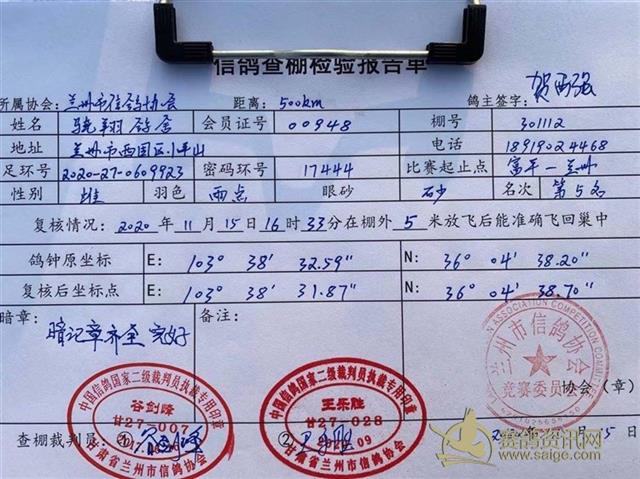 信鸽查棚检验报告单
所属协会：兰州市信鸽协会 距离：500km 鸽主签字：贺西强
姓名 骁翔鸽舍 会员证号 00948 棚号 301112
地址 兰州市西固区小坪山 电话 18919024468
足环号 2020-27-0609923 密码环号 17444 比赛起止点 富平—兰州
性别 雄 羽色 雨点 眼砂 砂 名次 第5名
复核情况：2020年11月15日16时33分在棚外5米放飞后能准确飞回巢中
鸽钟原坐标 E: 103° 38' 32.59" N: 36° 04' 38.20"
复核后坐标点 E: 103° 38' 31.87" N: 36° 04' 38.70"
暗章： 备注：
暗记章齐全完好
中国信鸽国家二级裁判员执裁专用印章
谷剑峰
甘27-007
甘肃省兰州市信鸽协会
中国信鸽国家二级裁判员执裁专用印章
王乐胜
甘27-028
甘肃省兰州市信鸽协会
兰州市信鸽协会
竞赛委员会
协会（章）
查棚裁判员：① ②
15日
赛鸽资讯网
www.saige.com